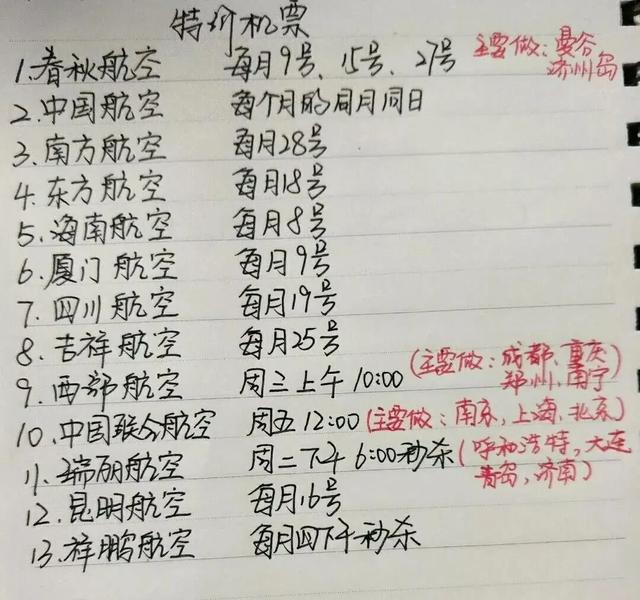 特价机票
1.春秋航空 每月9号、15号、27号 主要做:曼谷
济州岛
2.中国航空 每个月的同月同日
3.南方航空 每月28号
4.东方航空 每月18号
5.海南航空 每月8号
6.厦门航空 每月9号
7.四川航空 每月19号
8.吉祥航空 每月25号
9.西部航空 周三上午10:00 (主要做:成都、重庆
郑州、南宁)
10.中国联合航空 周五12:00 (主要做:南京,上海,北京)
11.瑞丽航空 周二下午6:00秒杀 (呼和浩特,大连
青岛,济南)
12.昆明航空 每月16号
13.祥鹏航空 每月四下午秒杀